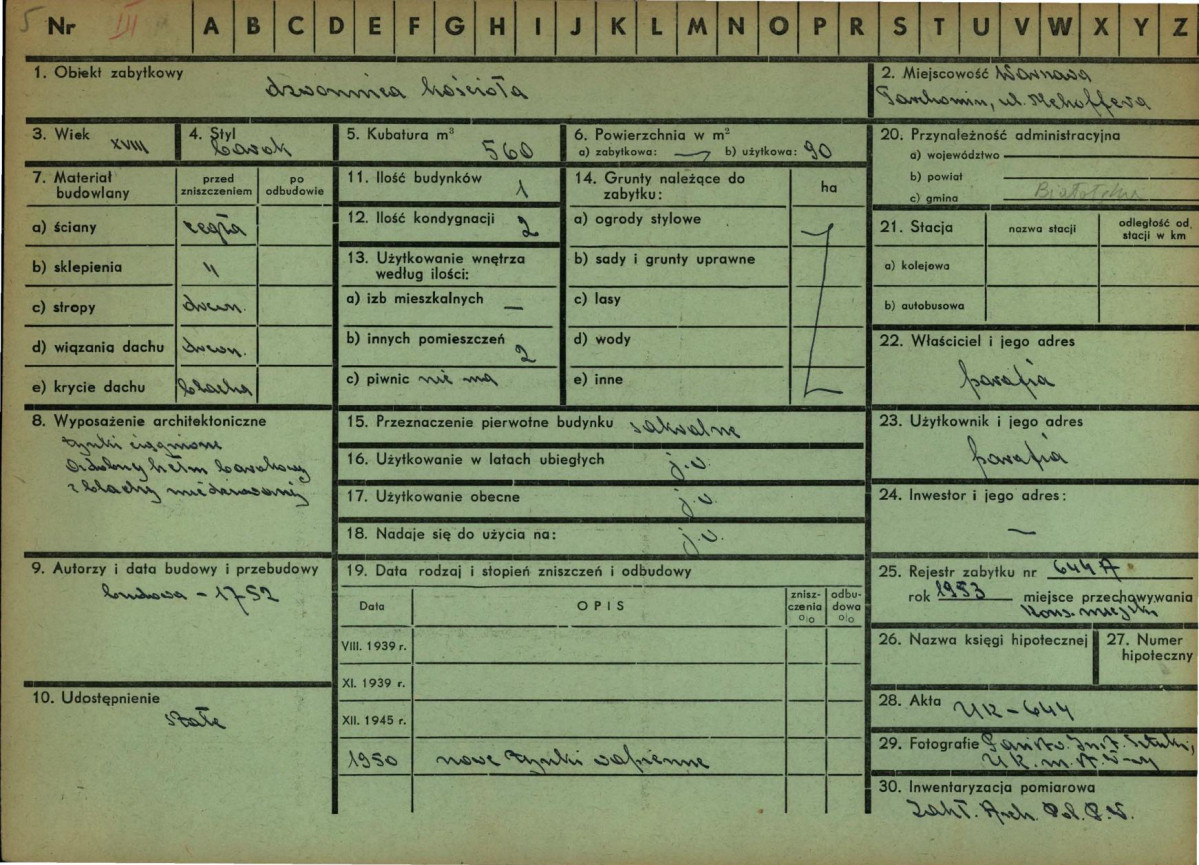 5 Nr III A B C D E F G H I J K L M N O P R S T U V W X Y Z
1. Obiekt zabytkowy
dzwonnica kościoła
2. Miejscowość Warszawa
Tarchomin, ul. Mehoffera
3. Wiek XVIII
4. Styl barok
5. Kubatura m³ 560
6. Powierzchnia w m²
a) zabytkowa: — b) użytkowa: 90
20. Przynależność administracyjna
a) województwo
b) powiat
c) gmina Białołęka
7. Materiał budowlany
przed zniszczeniem
po odbudowie
a) ściany cegła
b) sklepienia "
c) stropy drewn.
d) wiązania dachu drewn.
e) krycie dachu blacha
11. Ilość budynków 1
12. Ilość kondygnacji 2
13. Użytkowanie wnętrza
według ilości:
a) izb mieszkalnych —
b) innych pomieszczeń 2
c) piwnic nie ma
14. Grunty należące do
zabytku:
ha
a) ogrody stylowe
b) sady i grunty uprawne
c) lasy
d) wody
e) inne
21. Stacja
nazwa stacji
odległość od
stacji w km
a) kolejowa
b) autobusowa
22. Właściciel i jego adres
parafia
8. Wyposażenie architektoniczne
tynki ciągnione
Ozdobny hełm barokowy
z blachy miedziowanej
15. Przeznaczenie pierwotne budynku sakralne
16. Użytkowanie w latach ubiegłych j.w.
17. Użytkowanie obecne j.w.
18. Nadaje się do użycia na: j.w.
23. Użytkownik i jego adres
parafia
24. Inwestor i jego adres:
—
9. Autorzy i data budowy i przebudowy
budowa – 1752
10. Udostępnienie
stałe
19. Data rodzaj i stopień zniszczeń i odbudowy
Data OPIS
znisz-
czenia
o|o
odbu-
dowa
o|o
VIII. 1939 r.
XI. 1939 r.
XII. 1945 r.
1950 nowe tynki wapienne
25. Rejestr zabytku nr 644 A
rok 1953 miejsce przechowywania
Kons. miejski
26. Nazwa księgi hipotecznej
27. Numer
hipoteczny
28. Akta UK – 644
29. Fotografie Państw. Inst. Sztuki,
UK. m. st. W-wy
30. Inwentaryzacja pomiarowa
Zakł. Arch. Pol. P.W.